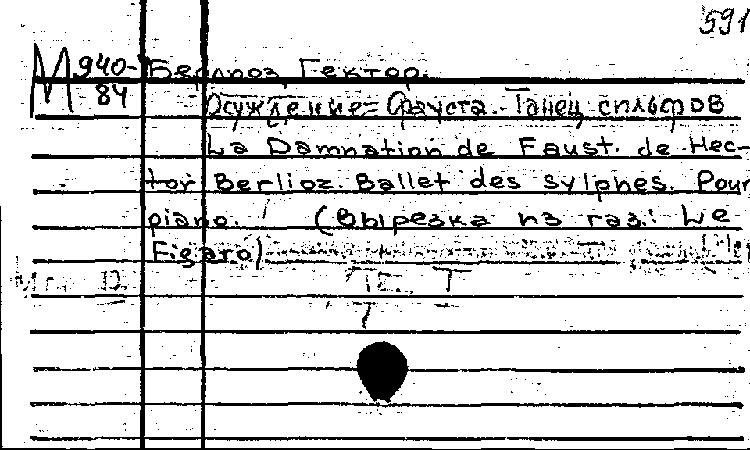 591
М 940-
84
Берлиоз, Гектор.
Осуждение Фауста. Танец сильфов
La Damnation de Faust. de Hec-
tor Berlioz. Ballet des sylphes. Pour
piano. (Вырезка из газ.: Le
Figaro)